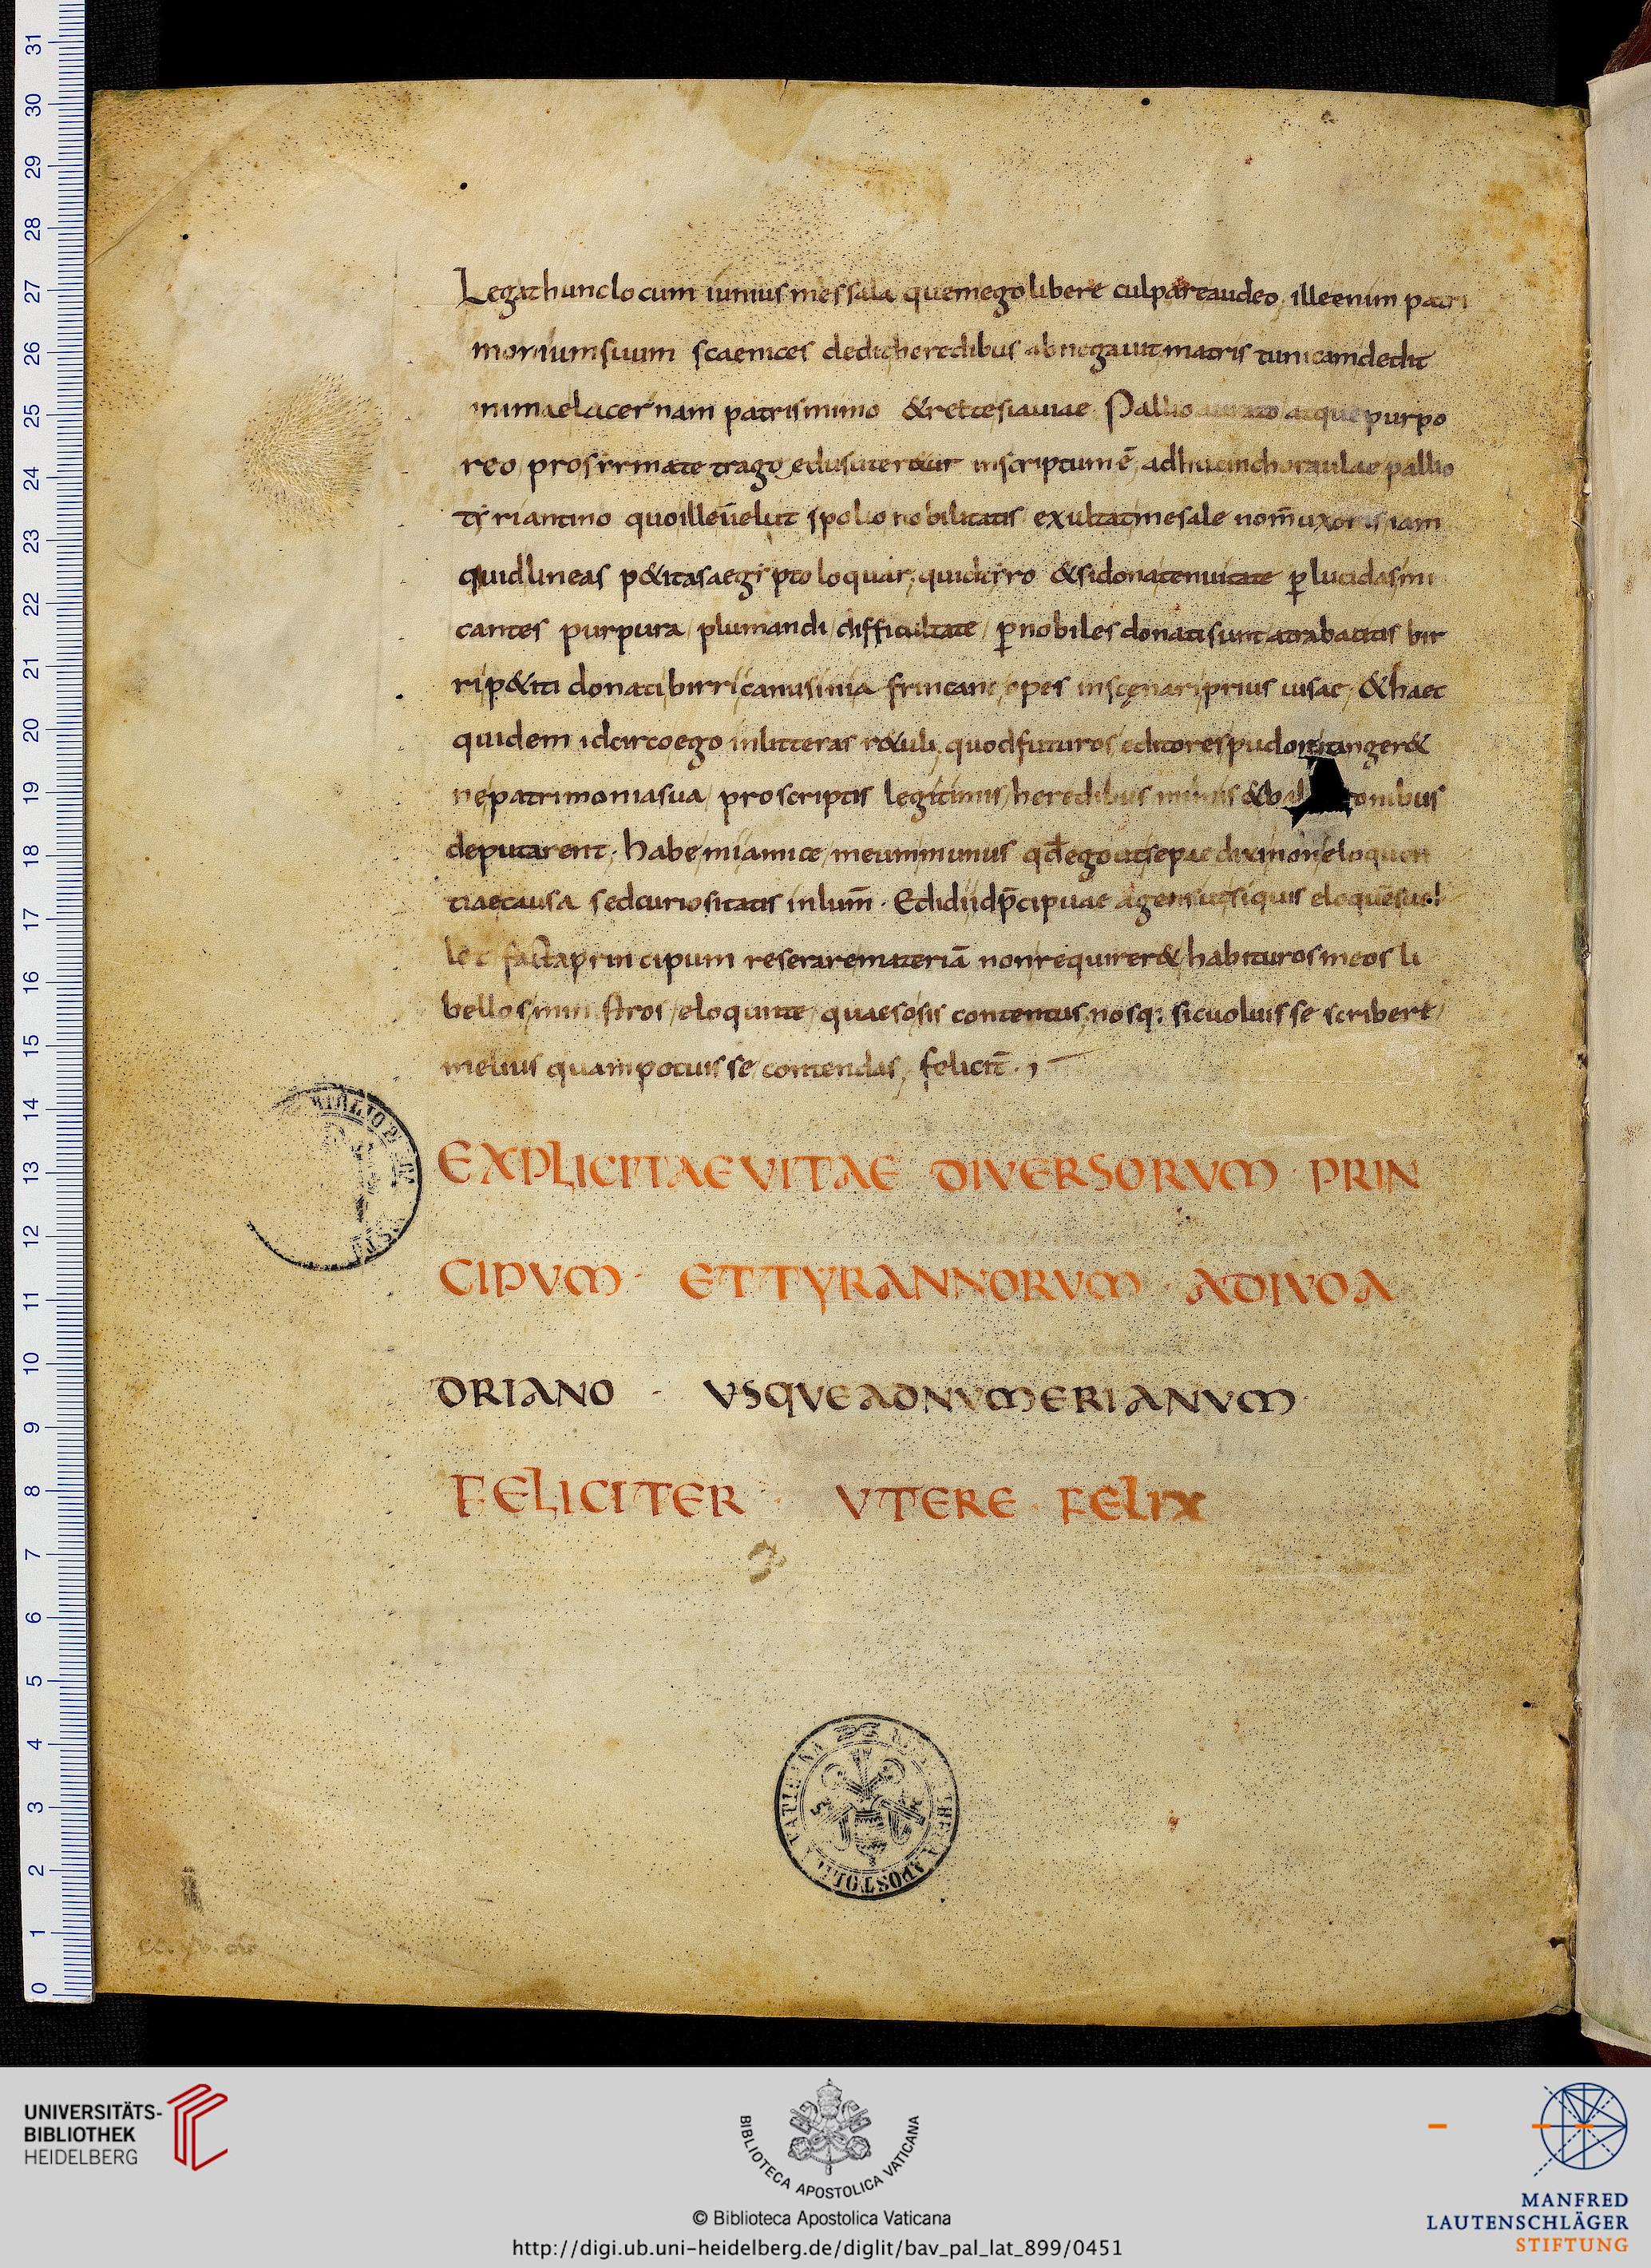 Legathunclocum iunius messala quemego libere culpareaudeo, illeenim patri
moniumsuum scaenices dedit heredibus abnegauit matris tunicamdedit
mimaelacernam patrismimo &rectesiauiae Pallio aurato atquepurpo
reo prosirmate tragoedusuter&ur inscriptumē adhucinchoraulae pallio
tyriantino quoilleuelut spolio nobilitatis exultatmesale nom̄uxoris iam
quidlineas p&itasaegypto loquar, quidtyro &sidonatenuitate ꝑlucidasmi
cantes purpura plumandi difficultate ꝑnobiles donatisuntatrabatitis bir
rip&iti donatibirricanusinia fricane opes inscęnariprius uisae, &haec
quidem idcircoego inlitteras r&uli, quodfuturos editorespudor
nepatrimoniasua proscriptis legitimis heredibus mimis &bal onibus
deputarent, habe miamice meummunus qd̄ego utsepae diximoneloquen
tiaecausa sedcuriositatis inlum̄. Edidi idp̄cipuae agens utsiquis eloquēsuel
let factaprincipum reseraremateriā nonrequirer& habiturosmeos li
bellos ministros eloquite quaesosis contentus, nosq: sicuoluisse scribere
melius quampotuisse contendas, felicit̄.,
EXPLICITAEVITAE DIVERSORVM · PRIN
CIPVM · ETTYRANNORVM · ADIVOA
DRIANO · VSQVEADNVMERIANVM·
FELICITER · VTERE · FELIX
31
30
29
28
27
26
25
24
23
22
21
20
19
18
17
16
15
14
13
12
11
10
9
8
7
6
5
4
3
2
1
0
UNIVERSITÄTS-
BIBLIOTHEK
HEIDELBERG
BIBLIOTECA APOSTOLICA VATICANA
© Biblioteca Apostolica Vaticana
http://digi.ub.uni-heidelberg.de/diglit/bav_pal_lat_899/0451
MANFRED
LAUTENSCHLÄGER
STIFTUNG